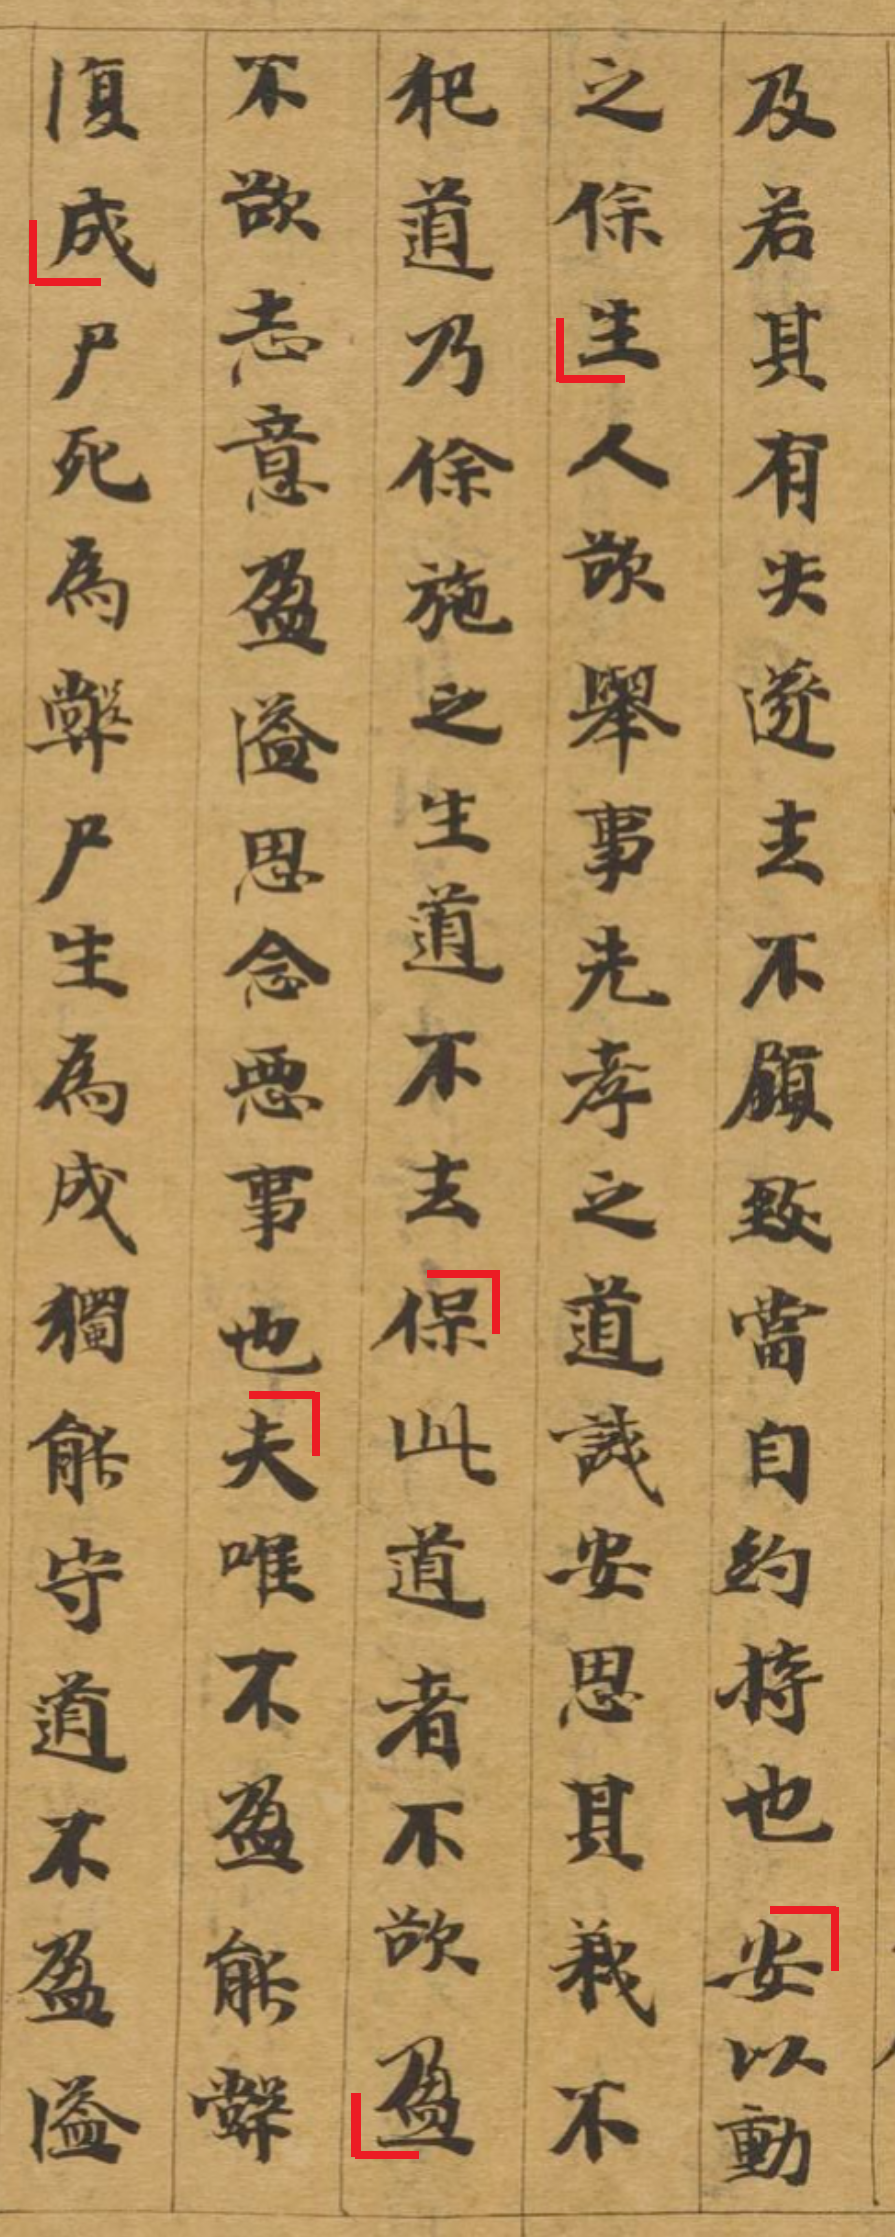 及若其有失遂去不顧致當自約持也安以動
之徐生人欲舉事先孝之道誡安思其義不
犯道乃徐施之生道不去保此道者不欲盈
不欲志意盈溢思念惡事也夫唯不盈能弊
復成尸死為弊尸生為成獨能守道不盈溢